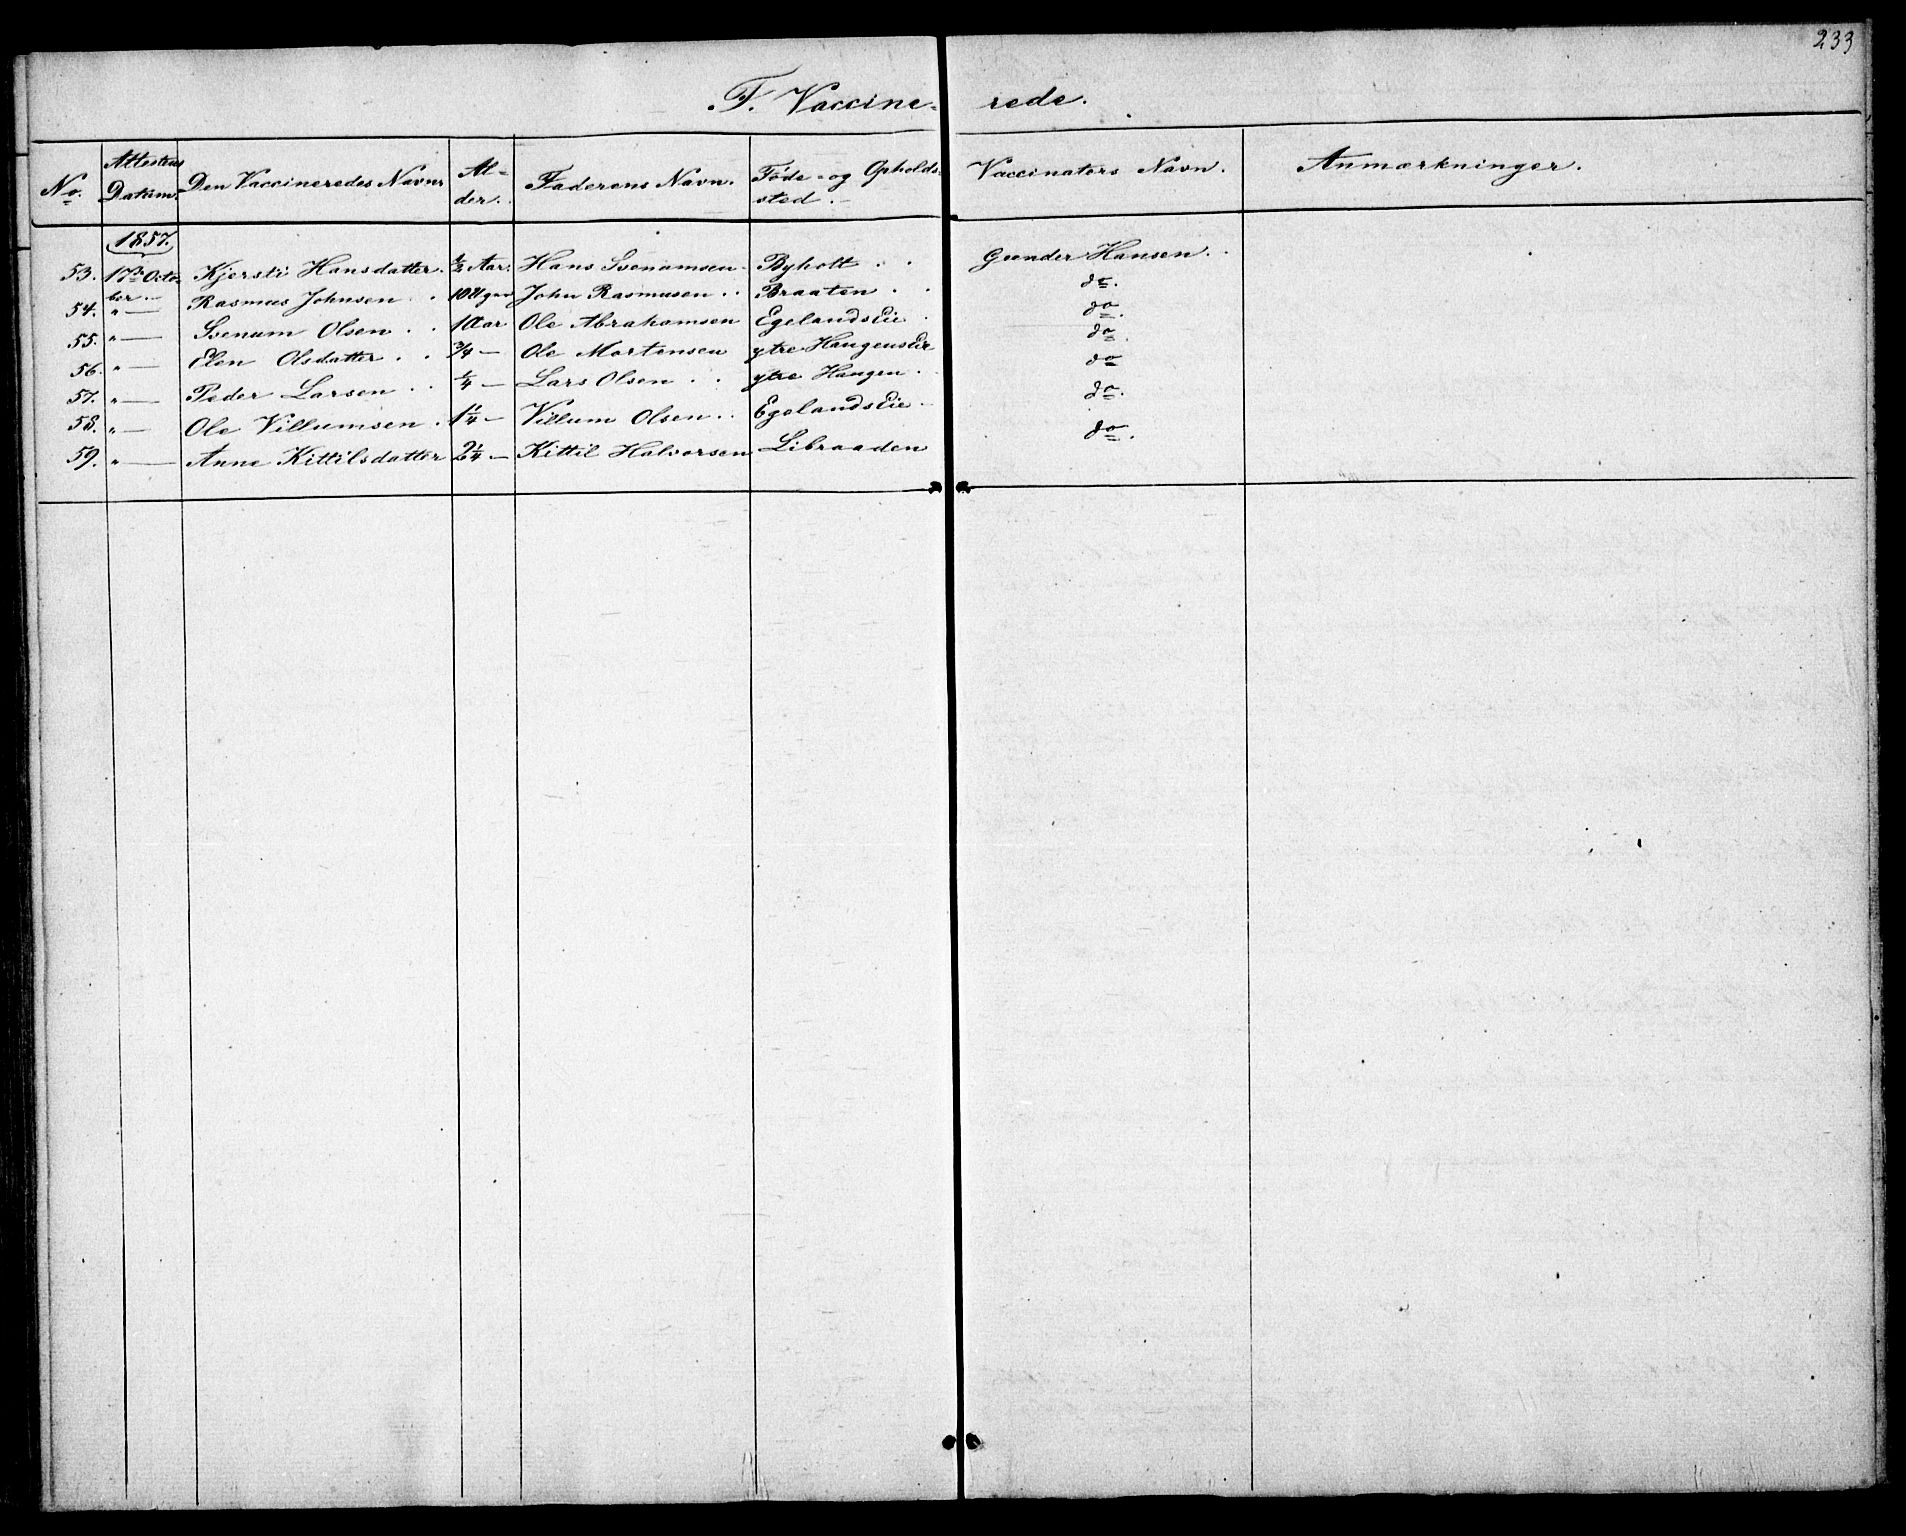 233
F. Vaccine- rede.
No. Attestens Datum. Den Vaccineredes Navn. Al- der. Faderens Navn. Føde- og Opholds- sted. Vaccinators Navn. Anmærkninger.
1857.
53. 17de Octo- ber. Kjersti Hansdatter. ½ Aar. Hans Svenumsen Byholt Gunder Hansen.
54. " — Rasmus Johnsen 10 Uger John Rasmusen Braaten do.
55. " — Svenum Olsen 1 Aar Ole Abrahamsen Egelands Eie do.
56. " — Elen Olsdatter ¾ — Ole Mortensen ytre Haugens Eie do.
57. " — Peder Larsen ¼ — Lars Olsen ytre Haugen do
58. " — Ole Villumsen 1¼ — Villum Olsen Egelands Eie do.
59. " — Anne Kittilsdatter 2¼ — Kittil Halvorsen Libraaden do.